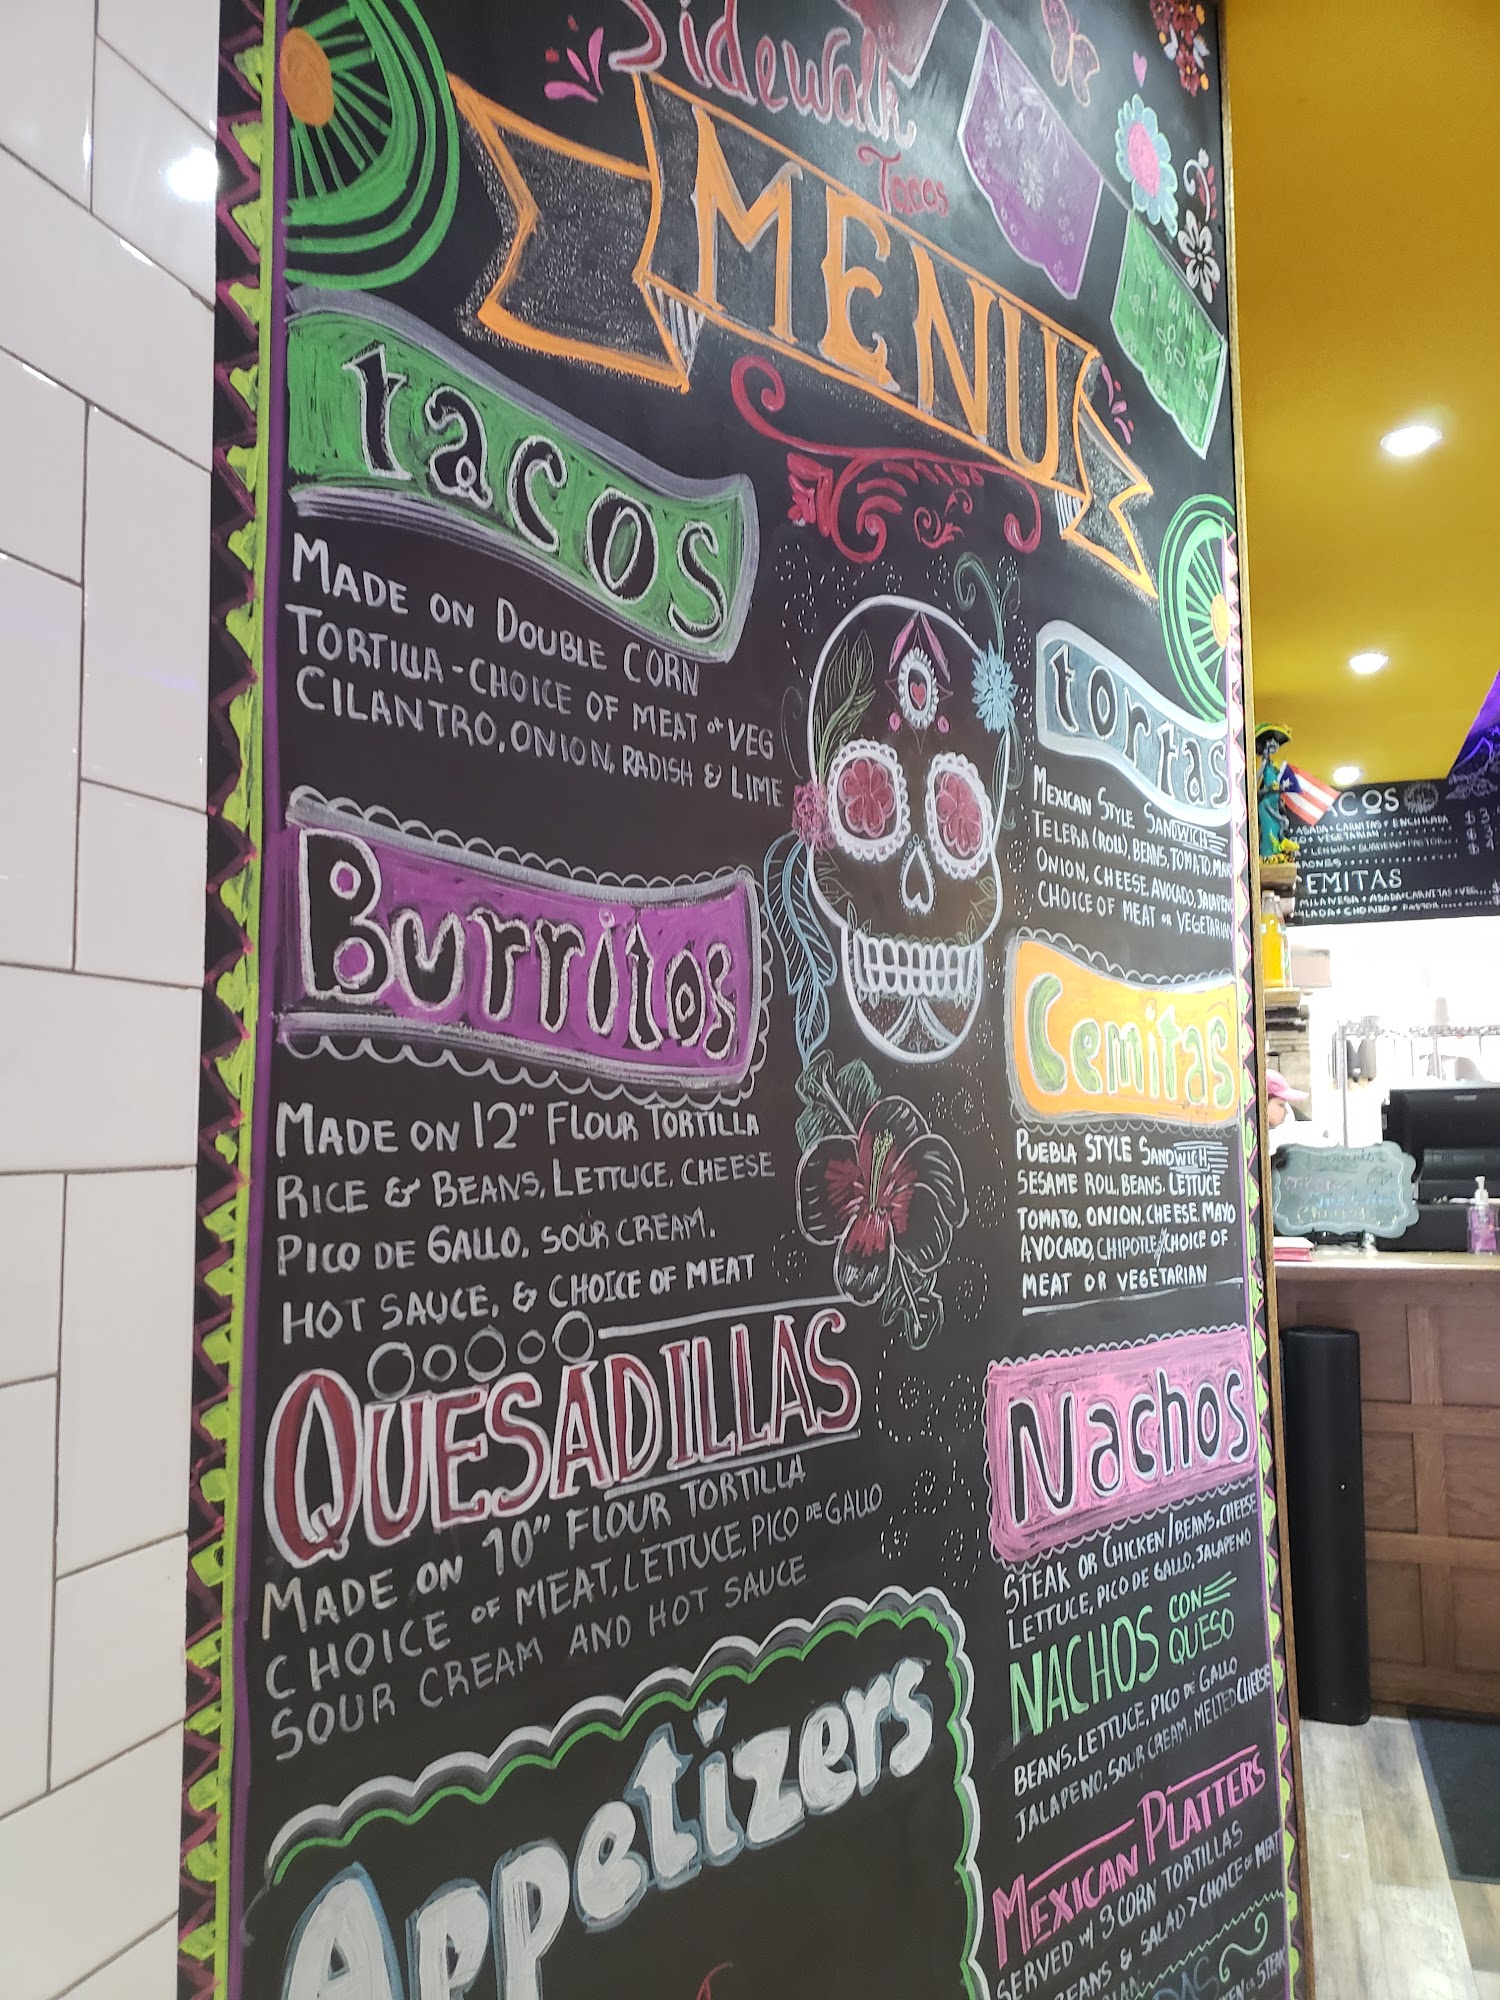 Sidewalk
Tacos
MENU
tacos
MADE ON DOUBLE CORN
TORTILLA - CHOICE OF MEAT or VEG
CILANTRO, ONION, RADISH & LIME
Burritos
MADE ON 12" FLOUR TORTILLA
RICE & BEANS, LETTUCE, CHEESE
PICO DE GALLO, SOUR CREAM,
HOT SAUCE, & CHOICE OF MEAT
QUESADILLAS
MADE ON 10" FLOUR TORTILLA
CHOICE OF MEAT, LETTUCE, PICO DE GALLO
SOUR CREAM AND HOT SAUCE
Appetizers
tortas
MEXICAN STYLE SANDWICH
TELERA (ROLL), BEANS, TOMATO,
ONION, CHEESE, AVOCADO, JALAPENO
CHOICE OF MEAT OR VEGETARIAN
Cemitas
PUEBLA STYLE SANDWICH
SESAME ROLL, BEANS, LETTUCE
TOMATO, ONION, CHEESE, MAYO
AVOCADO, CHIPOTLE/CHOICE OF
MEAT OR VEGETARIAN
Nachos
STEAK OR CHICKEN/BEANS, CHEESE
LETTUCE, PICO DE GALLO, JALAPENO
NACHOS CON QUESO
BEANS, LETTUCE, PICO DE GALLO
JALAPENO, SOUR CREAM, MELTED CHEESE
MEXICAN PLATTERS
SERVED W/ 3 CORN TORTILLAS
BEANS & SALAD > CHOICE OF MEAT
STEAK
ACOS
ASADA • CARNITAS • ENCHILADA
VEGETARIAN
EMITAS
MILANESA • ASADA • CARNITAS • VEG